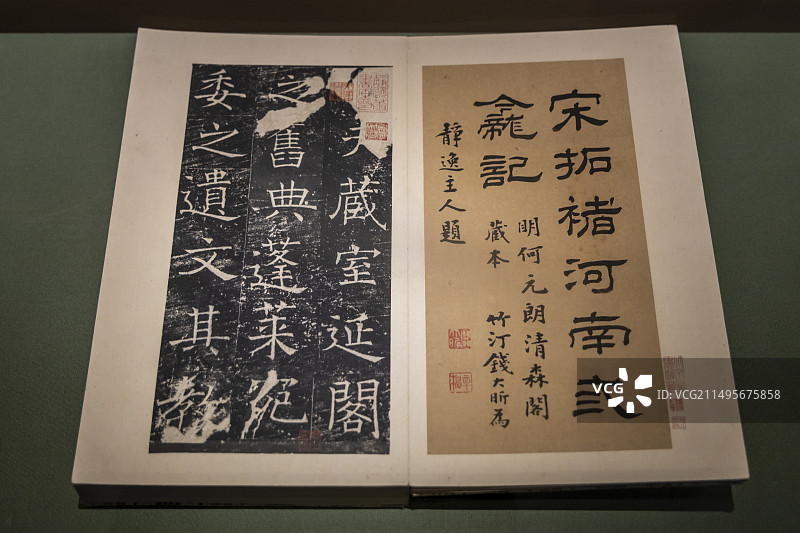 宋拓褚河南弎
龕記
明何元朗清森閣
藏本 竹汀錢大昕為
靜逸主人題
夫藏室延閣
之舊典蓬萊宛
委之遺文其教
VCG
ID:VCG211495675858